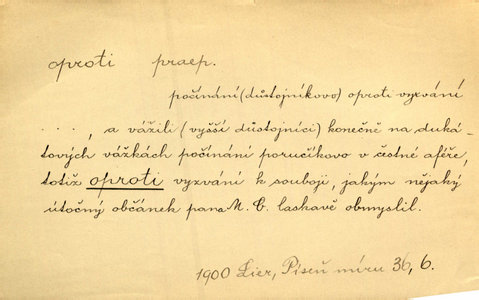 oproti praep.
počínání (důstojníkovo) oproti vyzvání
. . . ., a vážili (vyšší důstojníci) konečně na duká-
tových vážkách počínání poručíkovo v čestné aféře,
totiž oproti vyzvání k souboji, jakým nějaký
útočný občánek pana M. C. laskavě obmyslil.
1900 Lier, Píseň míru 36, 6.